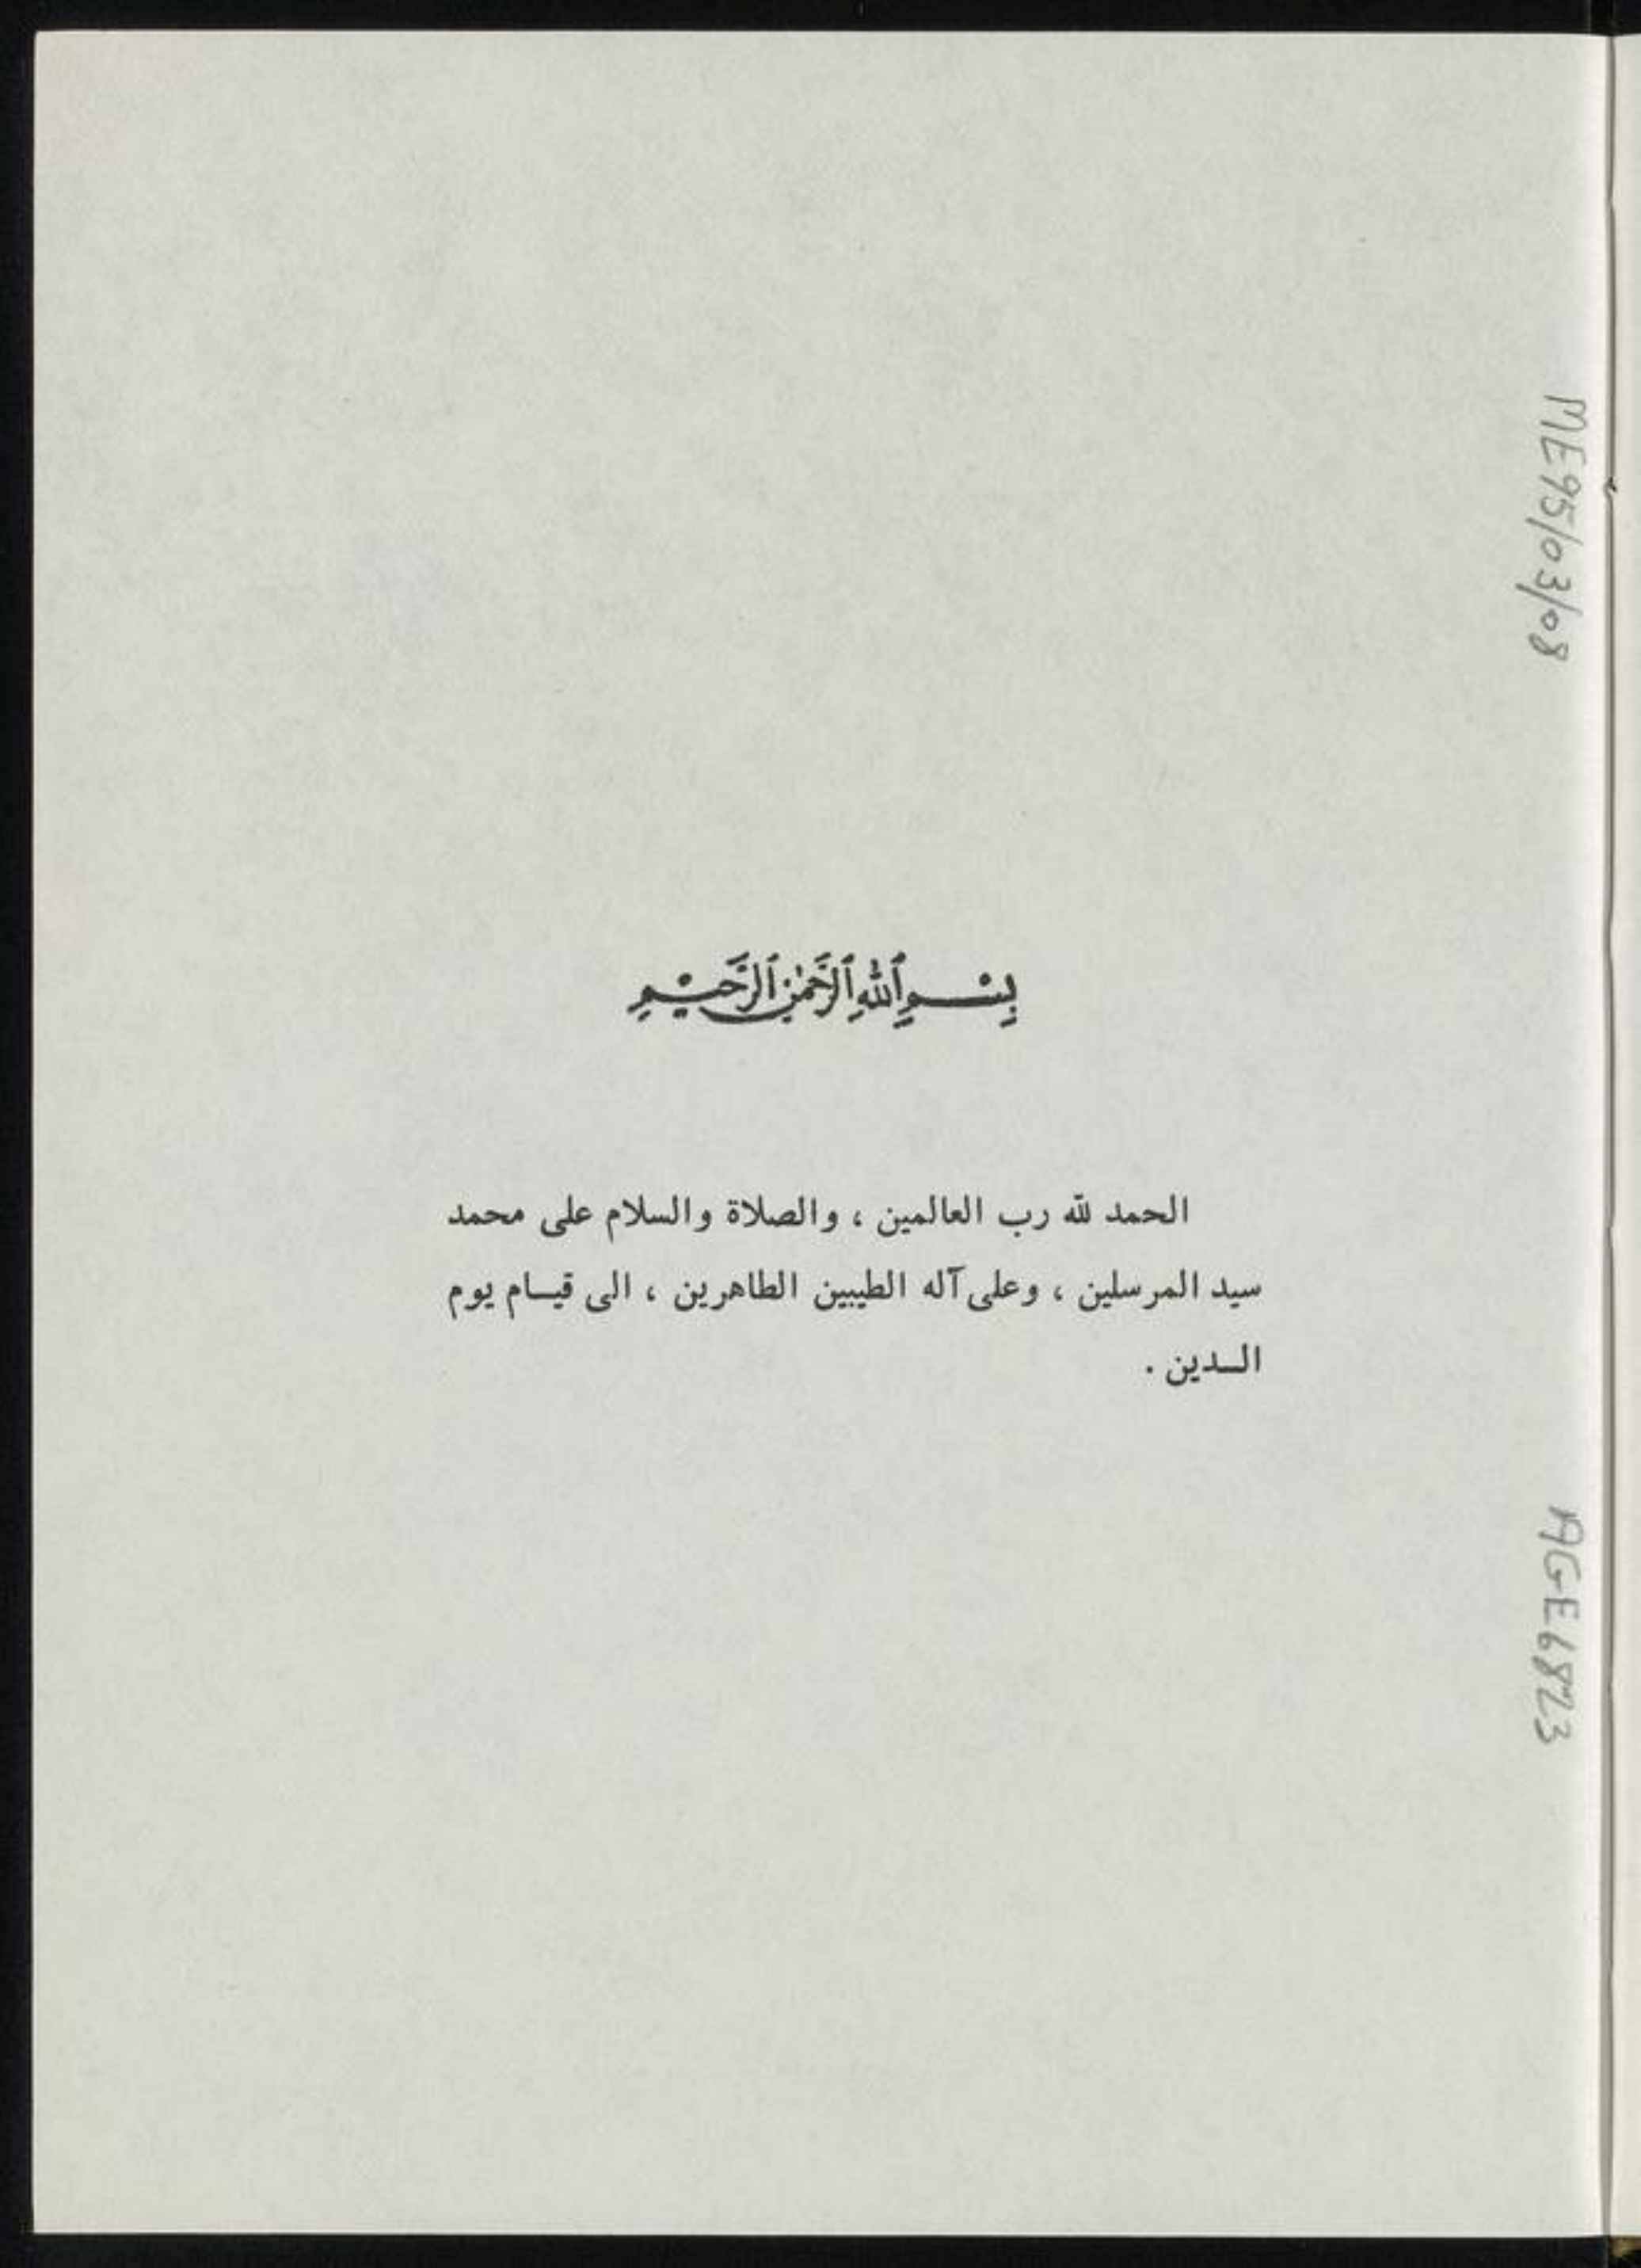 بِسْمِ ٱللَّهِ ٱلرَّحْمَٰنِ ٱلرَّحِيمِ
الحمد لله رب العالمين ، والصلاة والسلام على محمد
سيد المرسلين ، وعلى آله الطيبين الطاهرين ، الى قيــام يوم
الــدين .
ME95/03/08
AGE6823